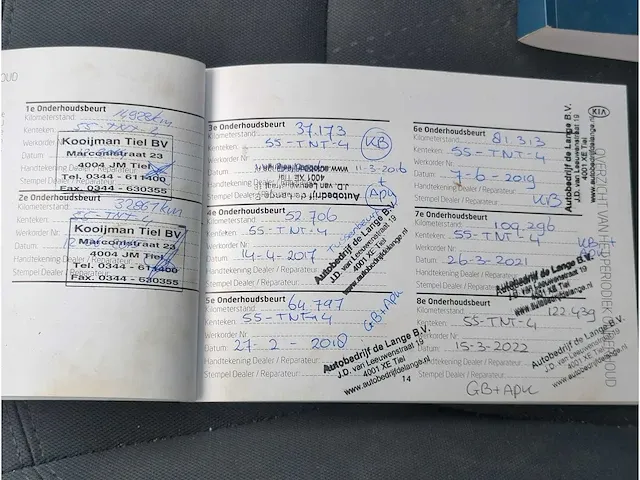 OUD
1e Onderhoudsbeurt
Kilometerstand:
Kenteken: 55-TNT-4
Werkorder Nr
Datum
Handtekening Dealer / Reparateur:
Stempel Dealer
Kooijman Tiel BV
Marconistraat 23
4004 JM Tiel
Tel. 0344 - 611400
Fax. 0344 - 630355
2e Onderhoudsbeurt
Kilometerstand: 32867 km
Kenteken: 55-TNT-4
Werkorder
Datum:
Handtekening
Stempel Dealer
Kooijman Tiel BV
Marconistraat 23
4004 JM Tiel
Tel. 0344 - 611400
Fax. 0344 - 630355
3e Onderhoudsbeurt
Kilometerstand: 37.173
Kenteken: 55-TNT-4
KB
Werkorder Nr
Datum: 11-3-2016
Handtekening Dealer
Stempel Dealer
+
APK
Autobedrijf de Lange B.V.
J.D. van Leeuwenstraat 19
4001 XE Tiel
www.autobedrijfdelange.nl
4e Onderhoudsbeurt
Kilometerstand: 52.706
Kenteken: 55-TNT-4
Werkorder Nr:
Datum: 14-4-2017
Handtekening Dealer / Reparateur:
Stempel Dealer / Reparateur:
Tussenbeurt
Autobedrijf de Lange B.V.
J.D. van Leeuwenstraat 19
4001 XE Tiel
www.autobedrijfdelange.nl
5e Onderhoudsbeurt
Kilometerstand: 64.797
Kenteken: 55-TNT-4
Werkorder Nr:
Datum: 27-2-2018
Handtekening Dealer / Reparateur:
Stempel Dealer / Reparateur:
GB+APK
Autobedrijf de Lange B.V.
J.D. van Leeuwenstraat 19
4001 XE Tiel
www.autobedrijfdelange.nl
14
6e Onderhoudsbeurt
Kilometerstand: 81.313
Kenteken: 55-TNT-4
Werkorder Nr:
Datum: 7-6-2019
Handtekening Dealer / Reparateur:
Stempel Dealer / Reparateur:
KB
Autobedrijf de Lange B.V.
J.D. van Leeuwenstraat 19
4001 XE Tiel
www.autobedrijfdelange.nl
7e Onderhoudsbeurt
Kilometerstand: 109.296
Kenteken: 55-TNT-4
Werkorder Nr:
Datum: 26-3-2021
Handtekening Dealer / Reparateur:
Stempel Dealer / Reparateur:
Autobedrijf de Lange B.V.
J.D. van Leeuwenstraat 19
4001 XE Tiel
8e Onderhoudsbeurt
Kilometerstand: 122.439
Kenteken: 55-TNT-4
Werkorder Nr:
Datum: 15-3-2022
Handtekening Dealer / Reparateur:
Stempel Dealer / Reparateur:
GB+APK
Autobedrijf de Lange B.V.
J.D. van Leeuwenstraat 19
4001 XE Tiel
www.autobedrijfdelange.nl
KIA
OVERZICHT VAN